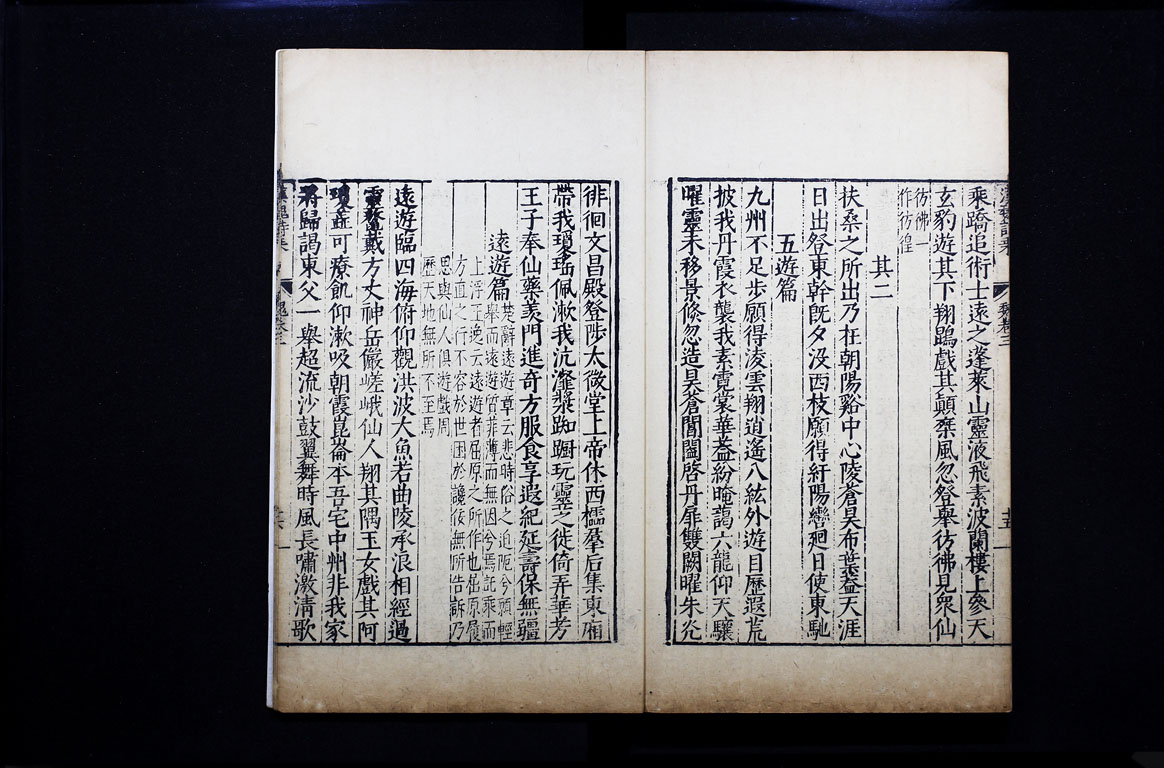 乘蹻追術士遠之蓬萊山靈液飛素波蘭桂上參天
玄豹遊其下翔鵾戲其顛乘風忽登舉彷彿見衆仙
彷彿一
作彷徨
其二
扶桑之所出乃在朝陽谿中心陵蒼昊布葉蓋天涯
日出登東幹既夕没西枝願得紆陽轡廻日使東馳
五遊篇
九州不足步願得凌雲翔逍遙八紘外遊目歷遐荒
披我丹霞衣襲我素霓裳華蓋紛晻藹六龍仰天驤
曜靈未移景倏忽造昊蒼閶闔啓丹扉雙闕曜朱光
徘徊文昌殿登陟太微堂上帝休西櫺羣后集東廂
帶我瓊瑤佩漱我沆瀣漿踟蹰玩靈芝徙倚弄華芳
王子奉仙藥羨門進奇方服食享遐紀延壽保無疆
遠遊篇
楚辭遠遊章云悲時俗之迫阨兮願輕
舉而遠遊質菲薄而無因兮焉託乘而
上浮王逸云遠遊者屈原之所作也屈原履
方直之行不容於世困於讒佞無所告訴乃
思與仙人俱遊戲周
歷天地無所不至焉
遠遊臨四海俯仰觀洪波大魚若曲陵承浪相經過
靈鼇戴方丈神岳儼嵯峨仙人翔其隅玉女戲其阿
瓊蕊可療飢仰漱吸朝霞崑崙本吾宅中州非我家
將歸謁東父一舉超流沙鼓翼舞時風長嘯激清歌